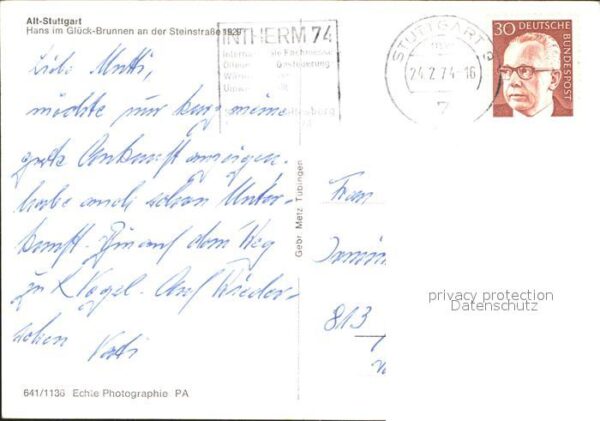 Alt-Stuttgart
Hans im Glück-Brunnen an der Steinstraße 1929
INTHERM 74
STUTTGART 3
24.2.74-16
7
30 DEUTSCHE
BUNDESPOST
Liebe Mutti,
möchte nur kurz meine
gute Ankunft anzeigen.
habe auch schon Unter-
kunft. Bin auf dem Weg
zu Vogel. Auf Wieder-
sehen Vati
Gebr. Metz Tübingen
Frau
813
privacy protection
Datenschutz
641/1136 Echte Photographie PA